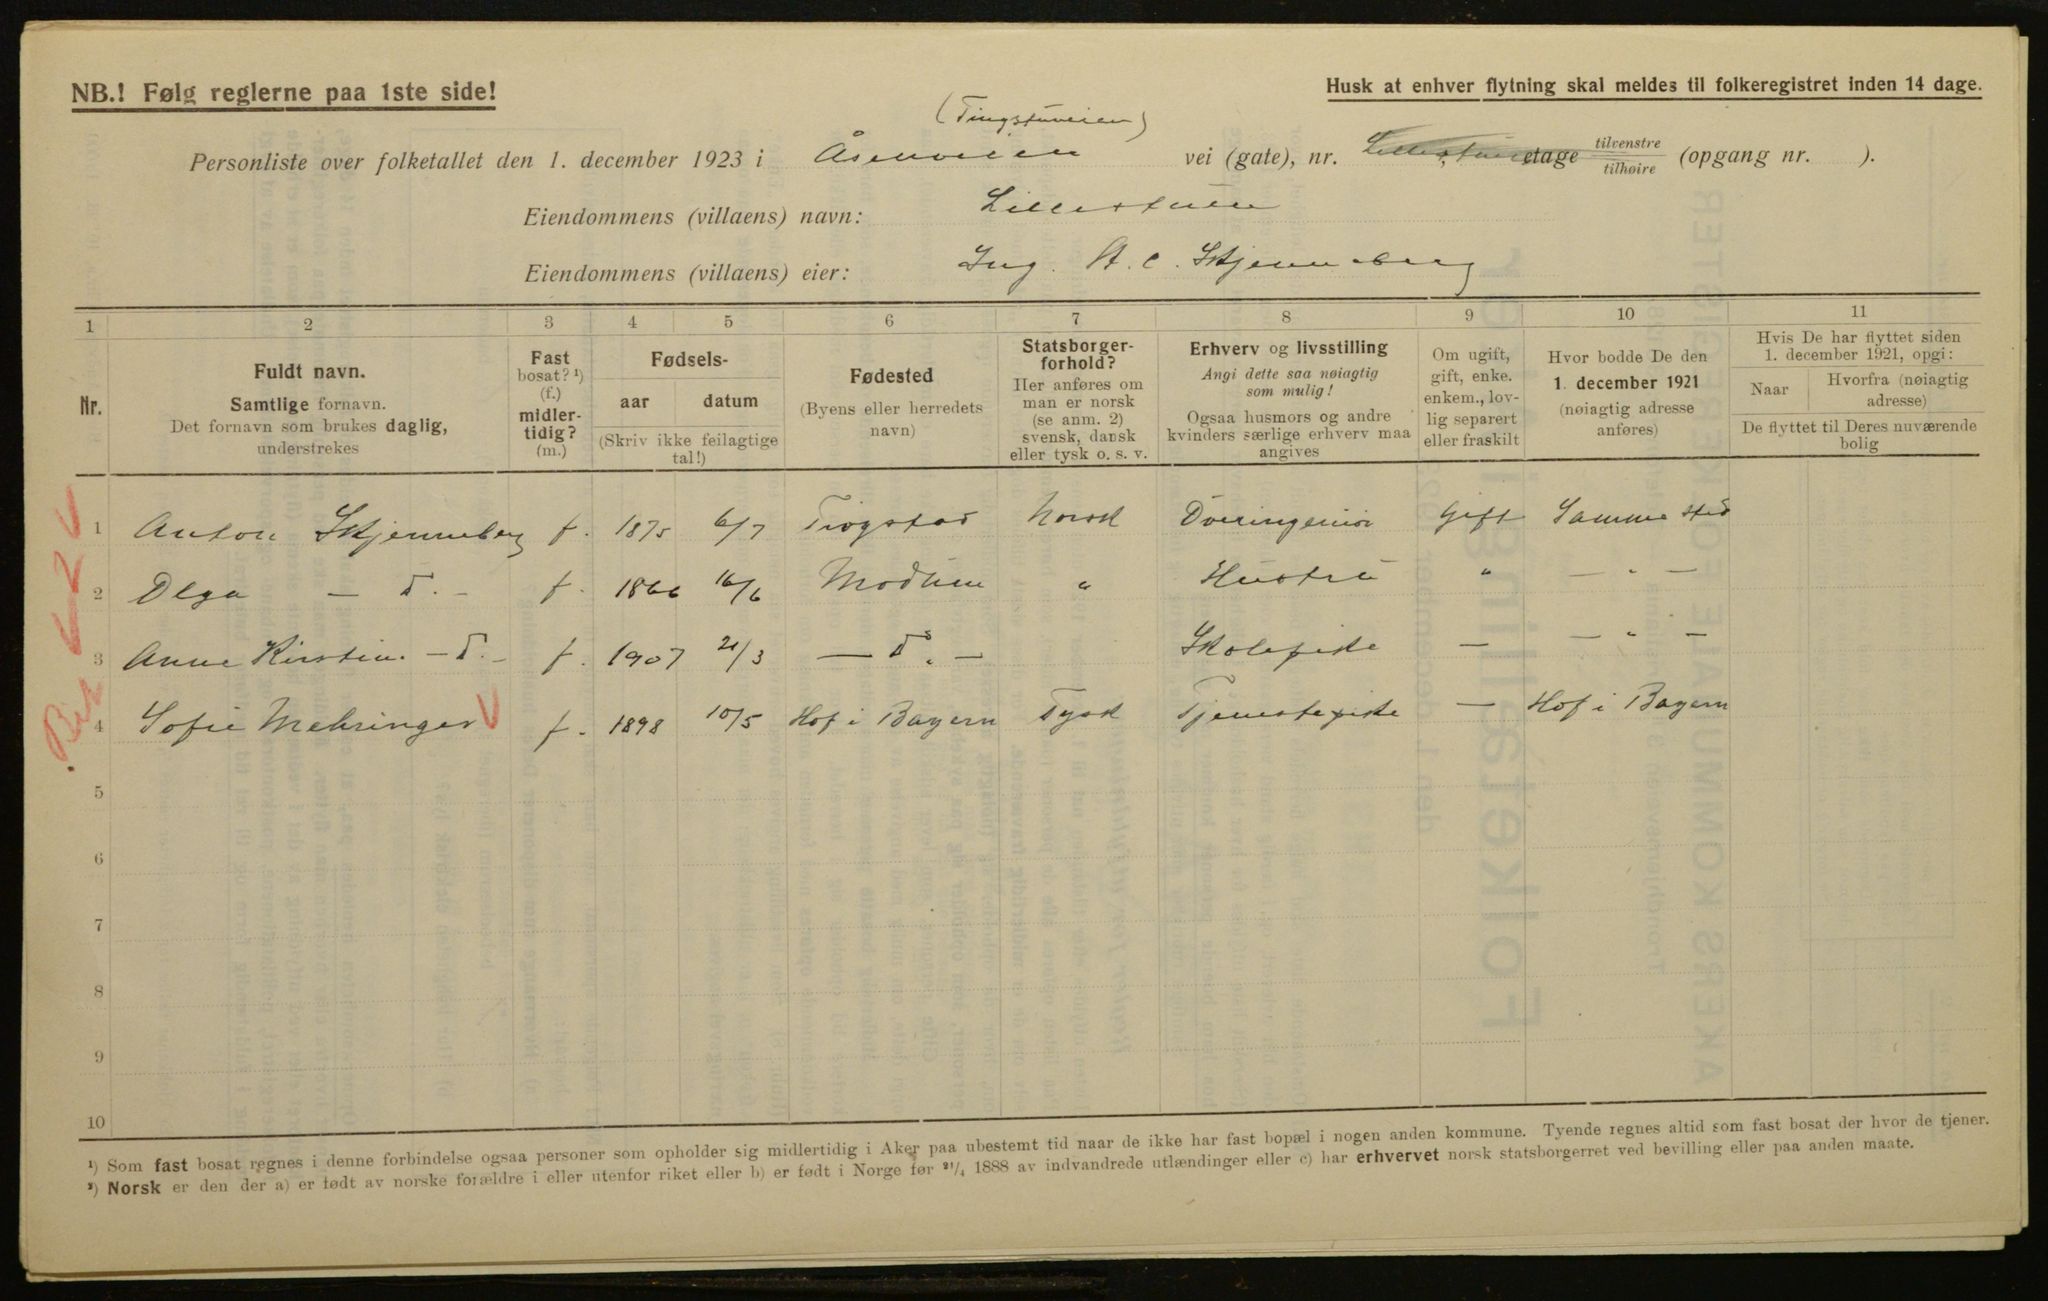 NB.! Følg reglerne paa 1ste side!
Husk at enhver flytning skal meldes til folkeregistret inden 14 dage.
(Tingstuveien)
Personliste over folketallet den 1. december 1923 i Åsenveien vei (gate), nr. Lillestuen etage tilvenstre tilhøire (opgang nr. ).
Eiendommens (villaens) navn: Lillestuen
Eiendommens (villaens) eier: Ing. A. C. Skjenneberg
1 2 3 4 5 6 7 8 9 10 11
Nr.
Fuldt navn.
Samtlige fornavn.
Det fornavn som brukes daglig,
understrekes
Fast
bosat? ¹)
(f.)
midler-
tidig?
(m.)
Fødsels-
aar datum
(Skriv ikke feilagtige
tal!)
Fødested
(Byens eller herredets
navn)
Statsborger-
forhold?
Her anføres om
man er norsk
(se anm. 2)
svensk, dansk
eller tysk o. s. v.
Erhverv og livsstilling
Angi dette saa nøiagtig
som mulig!
Ogsaa husmors og andre
kvinders særlige erhverv maa
angives
Om ugift,
gift, enke.
enkem., lov-
lig separert
eller fraskilt
Hvor bodde De den
1. december 1921
(nøiagtig adresse
anføres)
Hvis De har flyttet siden
1. december 1921, opgi:
Naar
Hvorfra (nøiagtig
adresse)
De flyttet til Deres nuværende
bolig
1 Anton Skjenneberg f. 1875 6/7 Trøgstad Norsk Overingeniør Gift Samme sted
2 Olga — d. — f. 1866 16/6 Modum " Hustru " — " —
3 Anne Kirstine — d. — f. 1907 21/3 — d. — Skolepike — — " —
4 Sofie Mehringer f. 1898 10/5 Hof i Bayern Tysk Tjenestepike — Hof i Bayern
5
6
7
8
9
10
¹) Som fast bosat regnes i denne forbindelse ogsaa personer som opholder sig midlertidig i Aker paa ubestemt tid naar de ikke har fast bopæl i nogen anden kommune. Tyende regnes altid som fast bosat der hvor de tjener.
²) Norsk er den der a) er født av norske forældre i eller utenfor riket eller b) er født i Norge før 21/4 1888 av indvandrede utlændinger eller c) har erhvervet norsk statsborgerret ved bevilling eller paa anden maate.